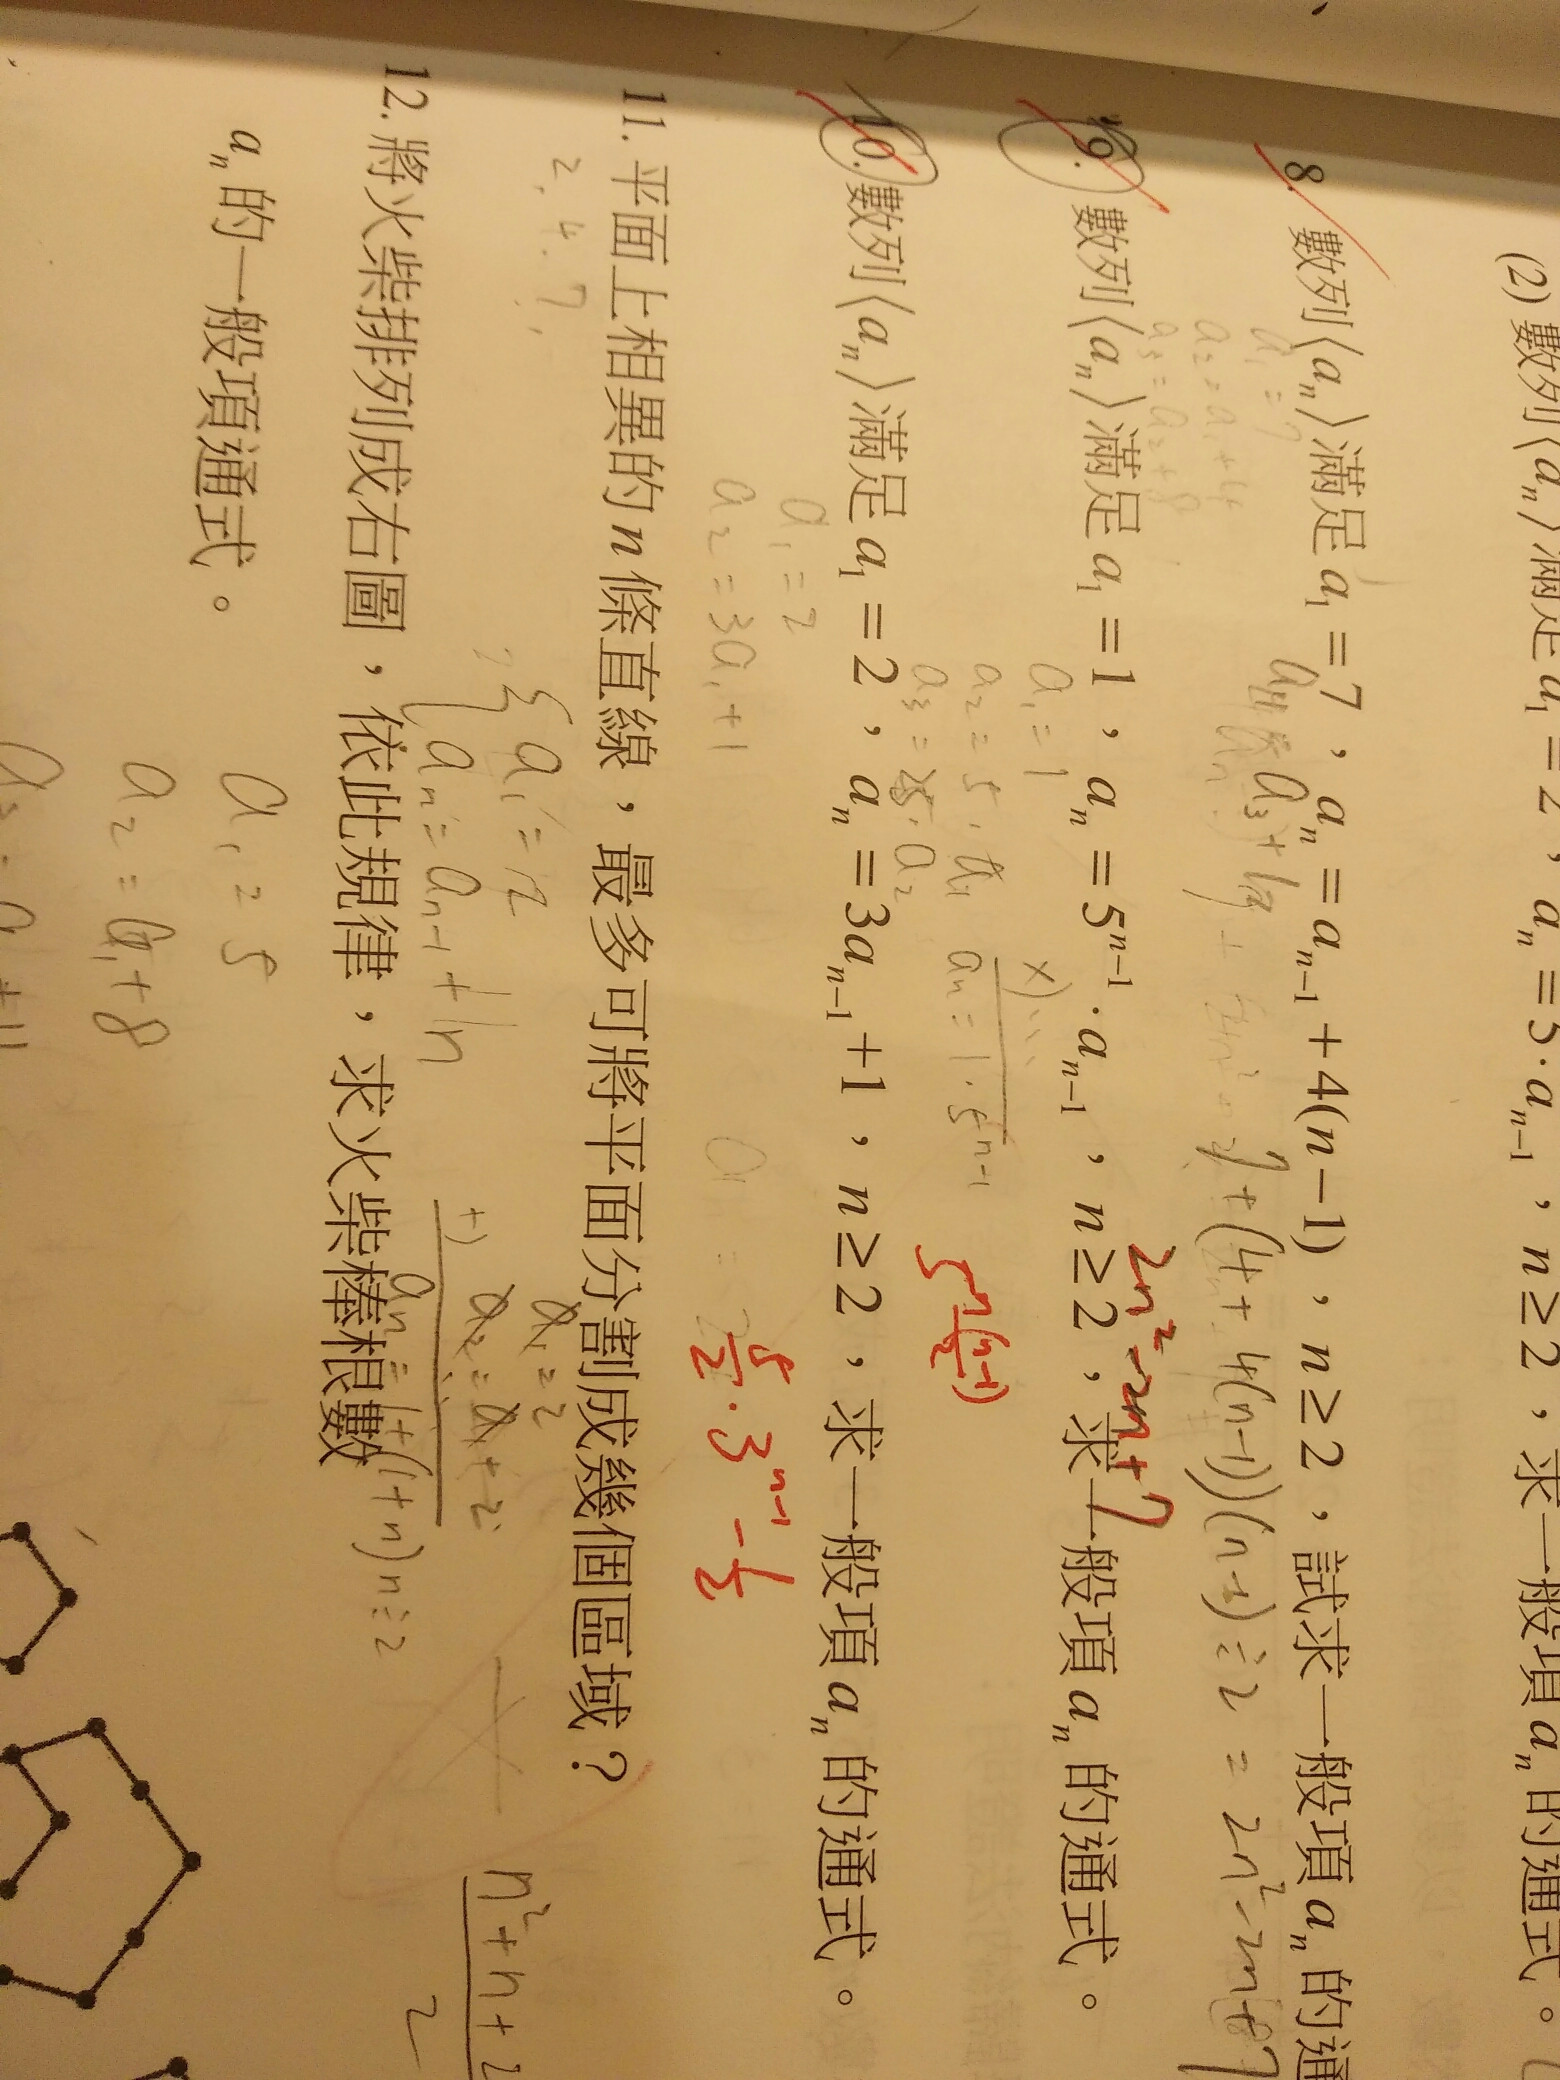 (2) 數列⟨aₙ⟩滿足 a₁ = 2，aₙ = 5·aₙ₋₁，n ≥ 2，求一般項 aₙ 的通式。
8. 數列⟨aₙ⟩滿足 a₁ = 7，aₙ = aₙ₋₁ + 4(n − 1)，n ≥ 2，試求一般項 aₙ 的通
a₁ = 7
a₂ = a₁ + 4
a₃ = a₂ + 8
7 + (4 + 4(n-1))(n-1) ÷ 2 = 2n² - 2n + 7
2n² - 2n + 7
9. 數列⟨aₙ⟩滿足 a₁ = 1，aₙ = 5ⁿ⁻¹·aₙ₋₁，n ≥ 2，求一般項 aₙ 的通式。
a₁ = 1
a₂ = 5·a₁
a₃ = 5·a₂
x)
aₙ = 1·5ⁿ⁻¹
10. 數列⟨aₙ⟩滿足 a₁ = 2，aₙ = 3aₙ₋₁ + 1，n ≥ 2，求一般項 aₙ 的通式。
a₁ = 2
a₂ = 3a₁ + 1
5/2 · 3ⁿ⁻¹ - 1/2
11. 平面上相異的 n 條直線，最多可將平面分割成幾個區域？
2, 4, 7,
a₁ = 2
aₙ = aₙ₋₁ + n
a₁ = 2
a₂ = a₁ + 2
+)
aₙ = 1 + (1 + n)n ÷ 2
n² + n + 2
2
12. 將火柴排列成右圖，依此規律，求火柴棒根數
aₙ 的一般項通式。
a₁ = 5
a₂ = a₁ + 8